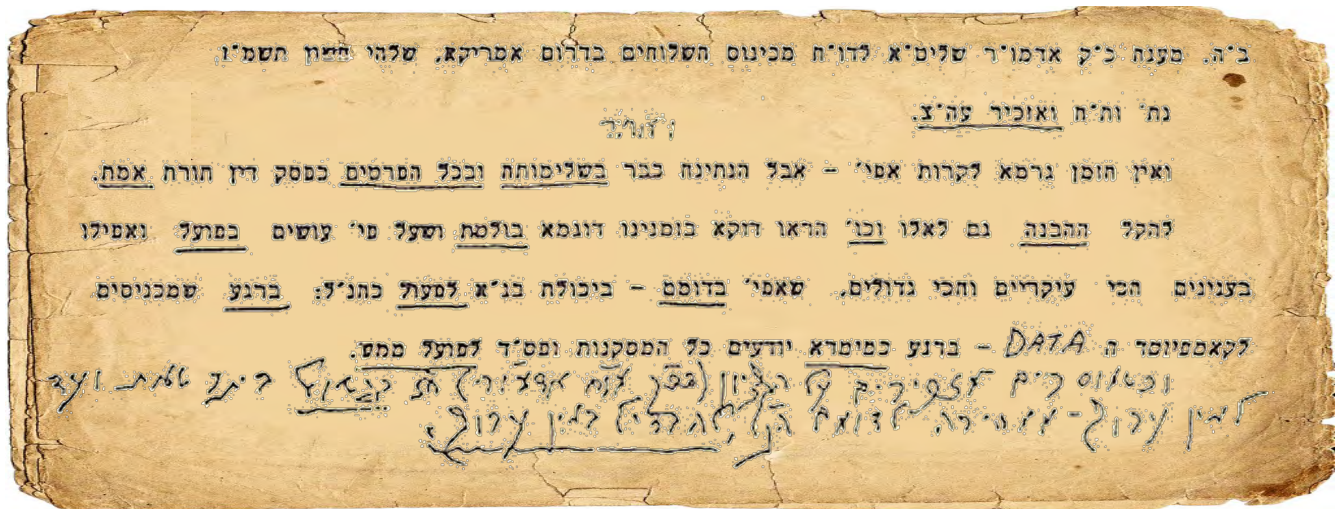 ב"ה. מענה כ"ק אדמו"ר שליט"א לדו"ח מכינוס השלוחים בדרום אמריקא, שלהי חשון תשמ"ו.
נת' ות"ח ואזכיר עה"צ.
ואין הזמן גרמא לקרות אפי' – אבל הנתינה כבר בשלימותה ובכל הפרטים כפסק דין תורת אמת.
להקל ההבנה גם לאלו וכו' הראו דוקא בזמנינו דוגמא בולטת ושעל פי' עושים בפועל ואפילו
בענינים הכי עיקריים והכי גדולים, שאפי' בדומם – ביכולת בנ"א לפעול כהנ"ל: ברגע שמכניסים
לקאמפיוטר ה DATA – ברגע כמימרא יודעים כל המסקנות ופס"ד לפועל ממש.
ועד
לאין ערוך הנ"ל להבדיל באין ערוך.